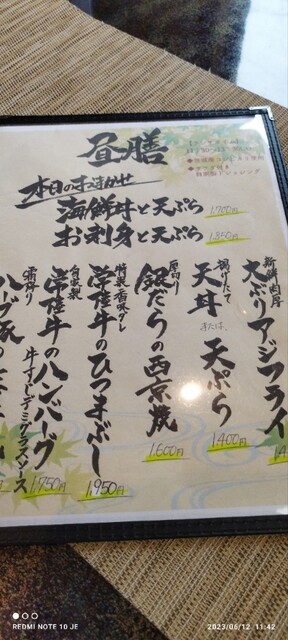 昼膳
本日のおまかせ
海鮮丼と天ぷら 1,700円
お刺身と天ぷら 1,850円
新鮮肉厚
大ぶりアジフライ
揚げたて
天丼 または、天ぷら
1,400円
厚切り
銀だらの西京焼
1,600円
特製香味ダレ
常陸牛のひつまぶし
1,950円
自家製
常陸牛のハンバーグ
牛すじデミグラスソース
1,750円
REDMI NOTE 10 JE
2023/06/12 11:42